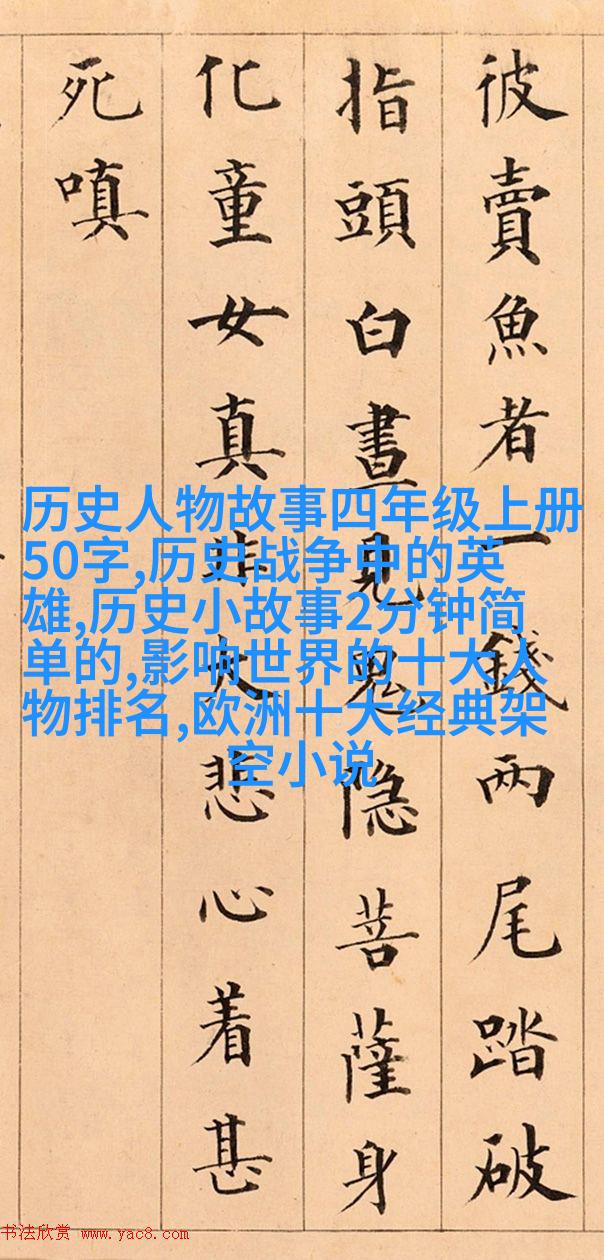 彼賣魚者一錢兩尾踏破
指頭白晝見鬼隐菩薩身
化童女真非大悲心着甚
死嗔
历史人物故事四年级上册
50字,历史战争中的英
雄,历史小故事2分钟简
单的,影响世界的十大人
物排名,欧洲十大经典架
空小说
书法欣赏 www.yac8.com